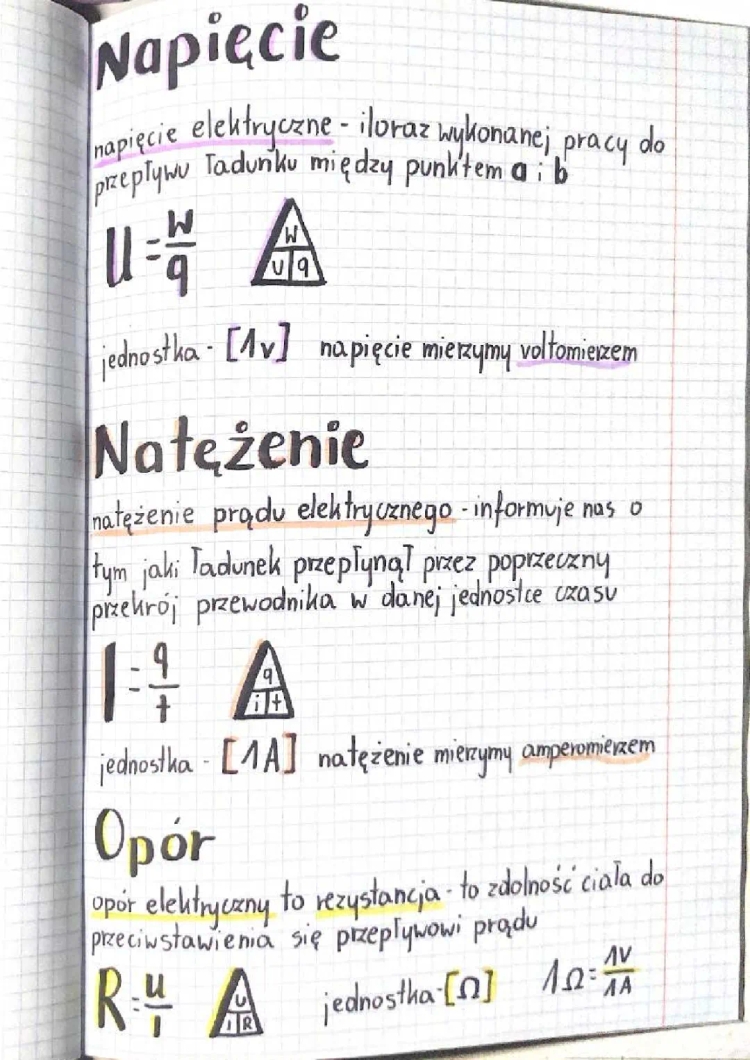 Napięcie
napięcie elektryczne - iloraz wykonanej pracy do
przepływu ładunku między punktem a i b
U = W/q W U q
jednostka - [1V] napięcie mierzymy voltomierzem
Natężenie
natężenie prądu elektrycznego - informuje nas o
tym jaki ładunek przepłynął przez poprzeczny
przekrój przewodnika w danej jednostce czasu
I = q/t q i t
jednostka - [1A] natężenie mierzymy amperomierzem
Opór
opór elektryczny to rezystancja - to zdolność ciała do
przeciwstawienia się przepływowi prądu
R = U/I U I R jednostka - [Ω] 1Ω = 1V/1A